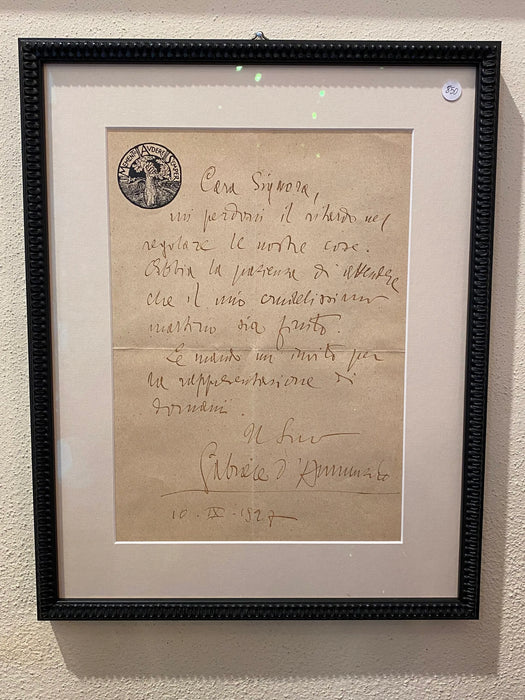 850
MEMENTO AVDERE SEMPER
Cara Signora,
mi perdoni il ritardo nel
regolare le nostre cose.
Abbia la pazienza di attendere
che il mio crudelissimo
martirio sia finito.
Le mando un invito per
la rappresentazione di
domani.
Il Suo
Gabriele d'Annunzio
10 . IX . 1927